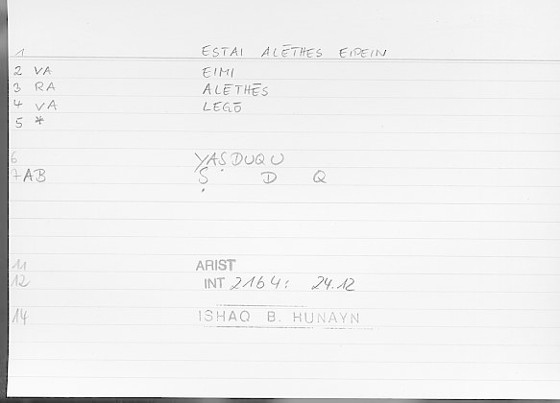 1 ESTAI ALĒTHES EIPEIN
2 VA EIMI
3 RA ALĒTHĒS
4 VA LEGŌ
5 *
6 YAṢDUQU
7 AB Ṣ D Q
11 ARIST
12 INT 2164: 24.12
14 ISHAQ B. HUNAYN